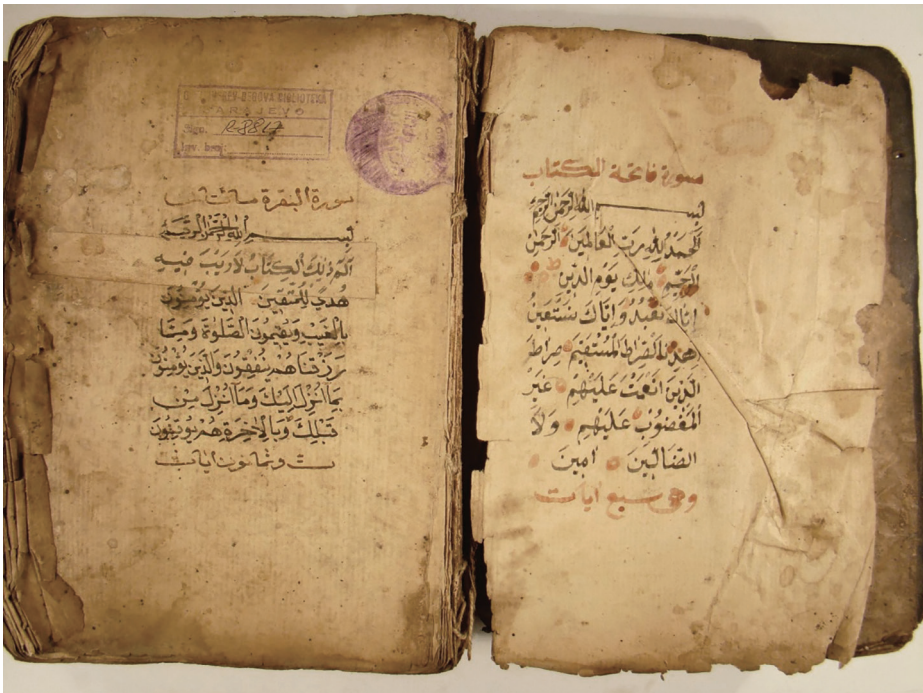 سورة فاتحة الكتاب
بِسْمِ اللهِ الرَّحْمٰنِ الرَّحِيمِ
اَلْحَمْدُ لِلّٰهِ رَبِّ الْعَالَمِينَ الرَّحْمٰنِ
الرَّحِيمِ مٰلِكِ يَوْمِ الدِّينِ
اِيَّاكَ نَعْبُدُ وَاِيَّاكَ نَسْتَعِينُ
هْدِنَا الصِّرَاطَ الْمُسْتَقِيمَ صِرَاطَ
الَّذِينَ اَنْعَمْتَ عَلَيْهِمْ غَيْرِ
الْمَغْضُوبِ عَلَيْهِمْ وَلَا
الضَّالِّينَ اٰمِينَ
وهى سبع ايات
ARAJEVO
Sign. R-8817
Inv. broj:
سورة البقرة
بِسْمِ اللهِ الرَّحْمٰنِ الرَّحِيمِ
الٓمٓ ذٰلِكَ الْكِتَابُ لَا رَيْبَ فِيهِ
هُدًى لِلْمُتَّقِينَ الَّذِينَ يُؤْمِنُونَ
بِالْغَيْبِ وَيُقِيمُونَ الصَّلٰوةَ وَمِمَّا
رَزَقْنَاهُمْ يُنْفِقُونَ وَالَّذِينَ يُؤْمِنُونَ
بِمَا اُنْزِلَ اِلَيْكَ وَمَا اُنْزِلَ مِنْ
قَبْلِكَ وَبِالْاٰخِرَةِ هُمْ يُوقِنُونَ
وثمانون ايات